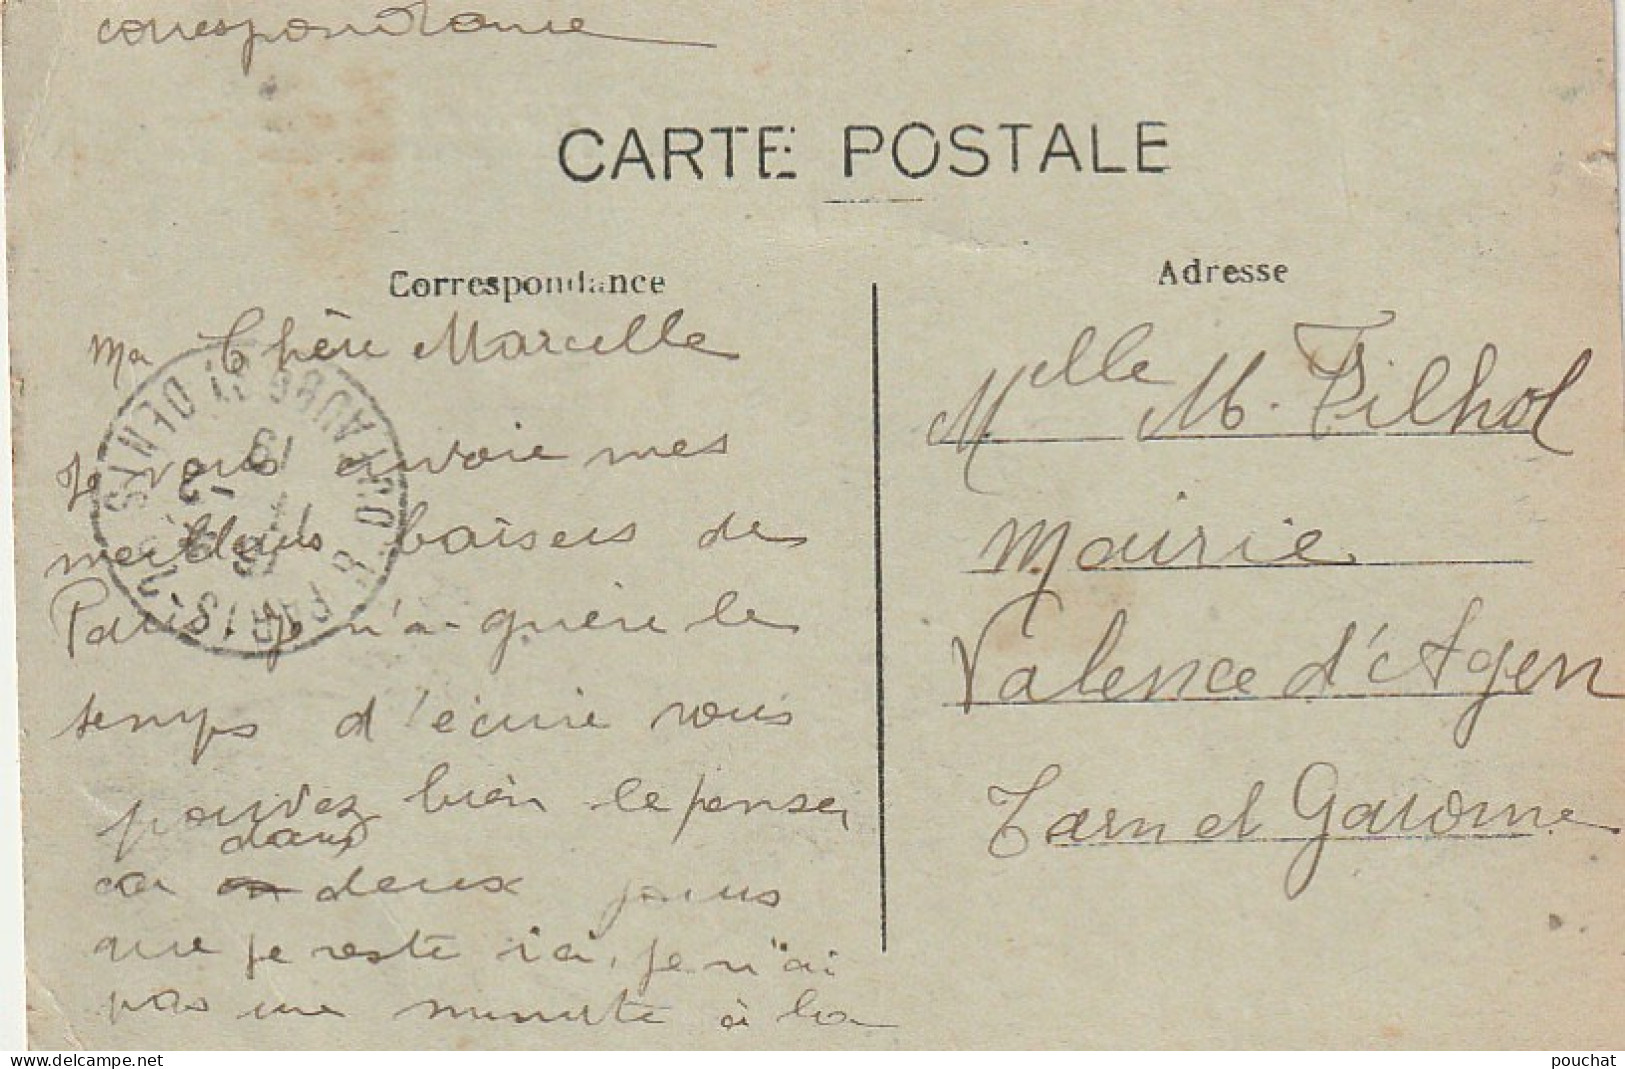 correspondance
CARTE POSTALE
Correspondance
Adresse
Ma Chère Marcelle
Je vous envoie mes
meilleurs baisers de
Paris. Je n'ai guère le
temps d'écrire vous
pouvez bien le penser
dans
ca deux jours
que je reste ici, je n'ai
pas une minute à la
Melle M. Filhol
Mairie
Valence d'Agen
Tarn et Garonne
PARIS
R. DU FAUBG ST DENIS
delcampe.net
pouchat